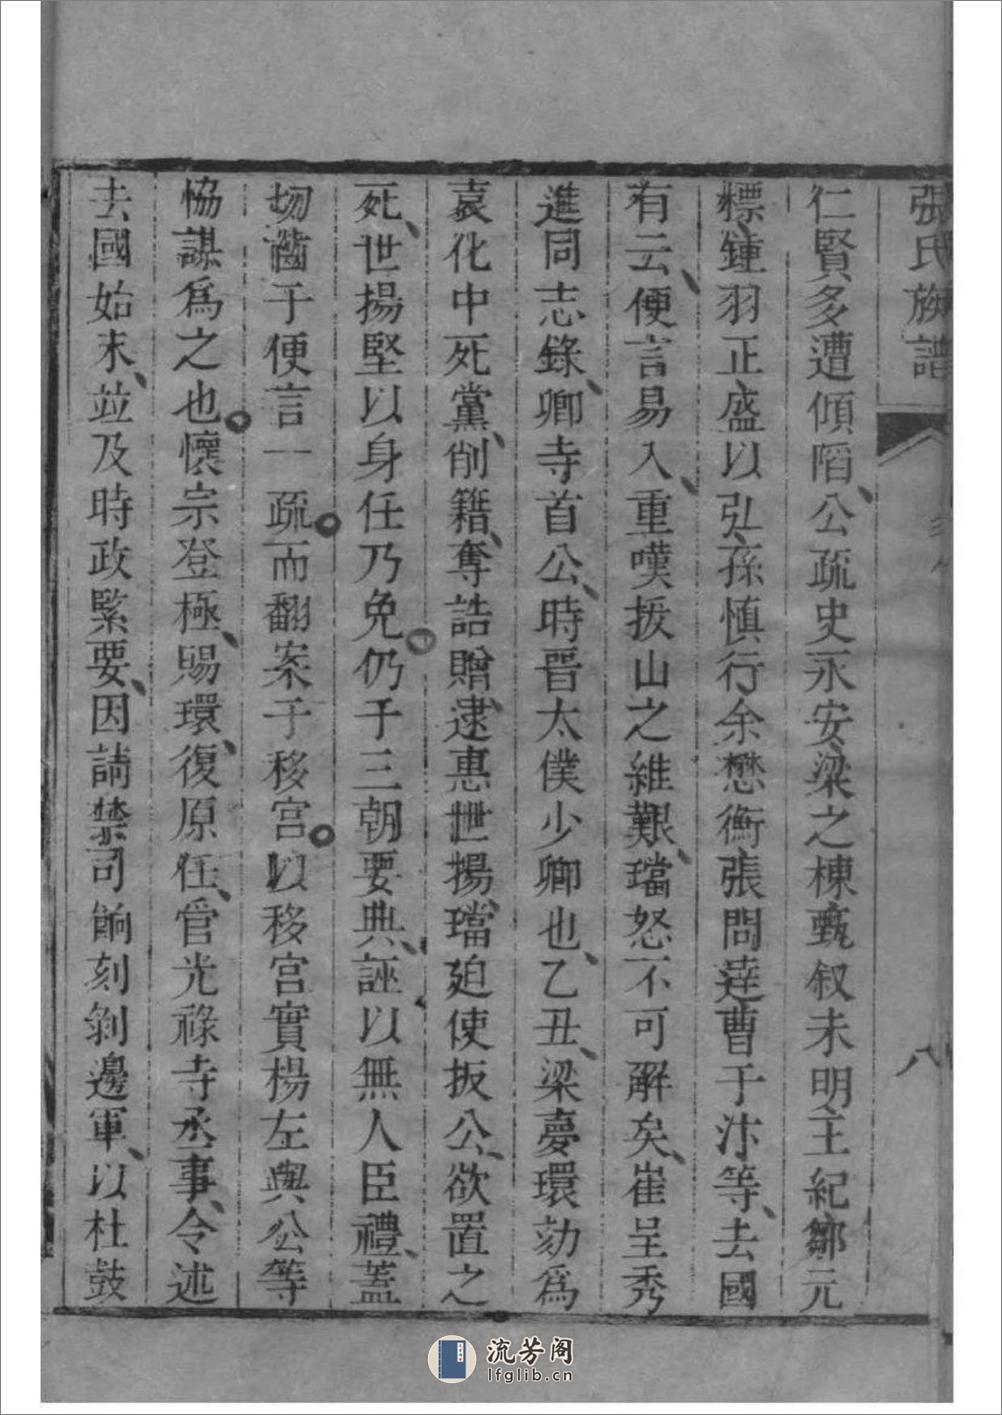 張氏族譜
八
仁賢多遭傾陷、公疏史永安梁之棟甄叙未明王紀鄒元
標鍾羽正盛以弘孫慎行余懋衡張問達曹于汴等、去國
有云、便言易入、重嘆拔山之維艱、璫怒不可解矣、崔呈秀
進同志錄、卿寺首公、時晋太僕少卿也、乙丑、梁夢環劾為
袁化中死黨、削籍、奪誥贈、逮惠世揚、璫廹使扳公、欲置之
死、世揚堅以身任乃免仍于三朝要典、誣以無人臣禮、蓋
切齒于便言一疏而翻案于移宮以移宮實楊左與公等
恊謀為之也懷宗登極、賜環、復原任、官光祿寺丞事、令述
去國始末、並及時政緊要、因請禁司餉刻剝邊軍、以杜鼓
流芳阁
lfglib.cn